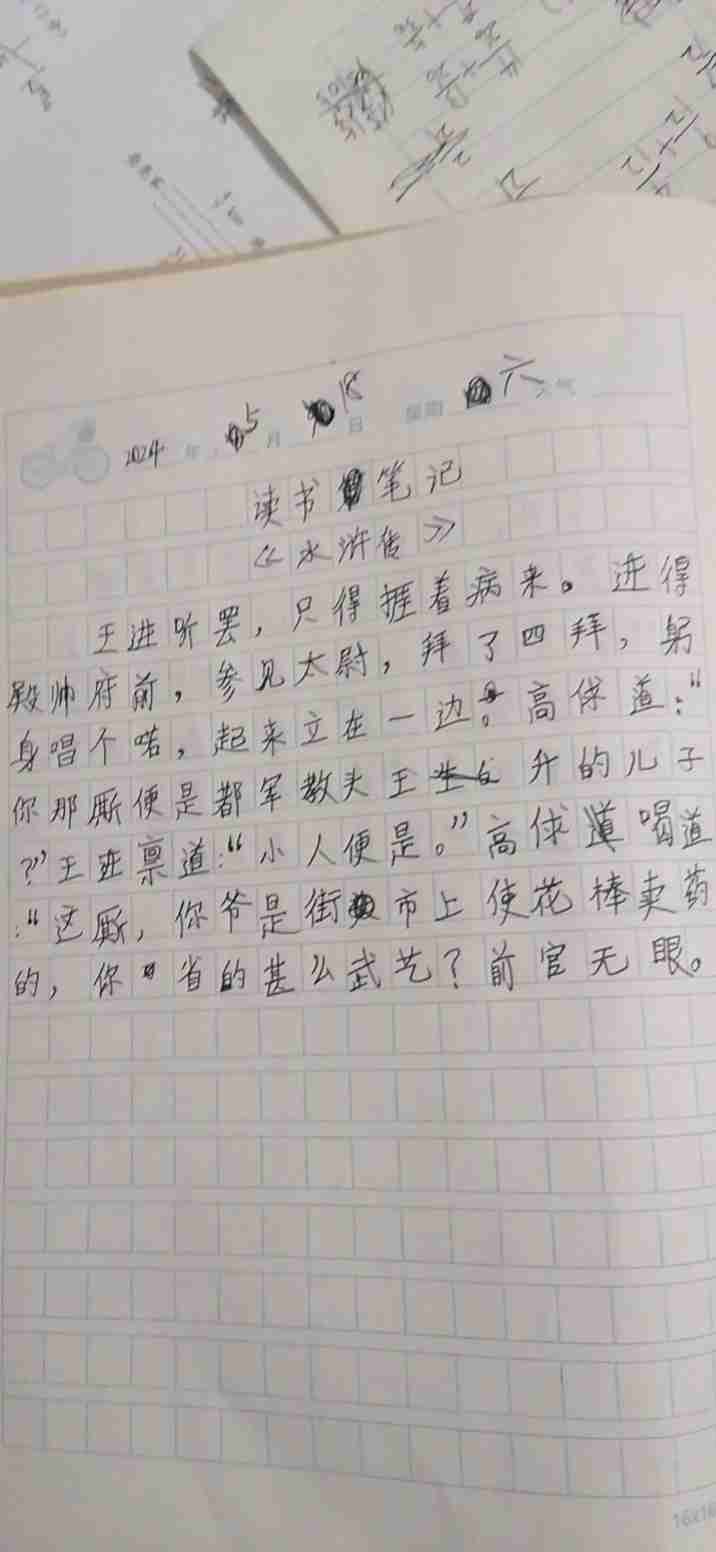 2024 年 5 月 18 日 星期 六 天气
读书笔记
《水浒传》
王进听罢，只得捱着病来。进得
殿帅府前，参见太尉，拜了四拜，躬
身唱个喏，起来立在一边。高俅道：“
你那厮便是都军教头王升的儿子
？”王进禀道：“小人便是。”高俅喝道
：“这厮，你爷是街市上使花棒卖药
的，你省的甚么武艺？前官无眼。
16x16